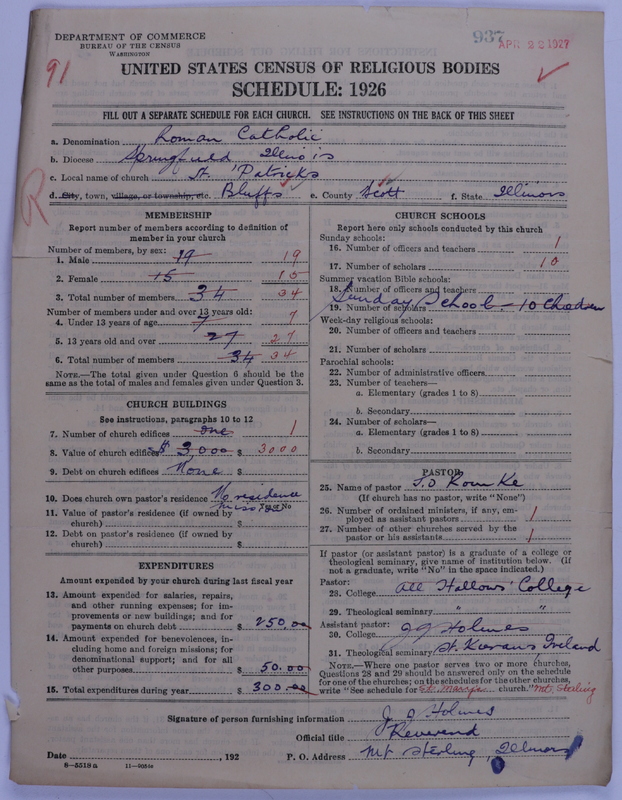 DEPARTMENT OF COMMERCE
BUREAU OF THE CENSUS
WASHINGTON
937
APR 28 1927
91
UNITED STATES CENSUS OF RELIGIOUS BODIES
SCHEDULE: 1926
FILL OUT A SEPARATE SCHEDULE FOR EACH CHURCH. SEE INSTRUCTIONS ON THE BACK OF THIS SHEET
a. Denomination Roman Catholic
b. Diocese Springfield Illinois
c. Local name of church St Patricks
d. City, town, village, or township, etc. Bluffs e. County Scott f. State Illinois
R
MEMBERSHIP
Report number of members according to definition of
member in your church
Number of members, by sex:
1. Male 19 19
2. Female 15 15
3. Total number of members 34 34
Number of members under and over 13 years old:
4. Under 13 years of age 7 7
5. 13 years old and over 27 27
6. Total number of members 34 34
NOTE.—The total given under Question 6 should be
same as the total of males and females given under Question 3.
CHURCH BUILDINGS
See instructions, paragraphs 10 to 12
7. Number of church edifices one 1
8. Value of church edifices $3,000 $ 3000
9. Debt on church edifices None $
10. Does church own pastor's residence No residence
Yes or No
11. Value of pastor's residence (if owned by
church) $
12. Debt on pastor's residence (if owned by
church) $
EXPENDITURES
Amount expended by your church during last fiscal year
13. Amount expended for salaries, repairs,
and other running expenses; for im-
provements or new buildings; and for
payments on church debt $ 250.00
14. Amount expended for benevolences, in-
cluding home and foreign missions; for
denominational support; and for all
other purposes $ 50.00
15. Total expenditures during year $ 300.00
CHURCH SCHOOLS
Report here only schools conducted by this church
Sunday schools:
16. Number of officers and teachers 1
17. Number of scholars 10
Summer vacation Bible schools:
18. Number of officers and teachers
Sunday School - 10 Children
19. Number of scholars
Week-day religious schools:
20. Number of officers and teachers
21. Number of scholars
Parochial schools:
22. Number of administrative officers
23. Number of teachers—
a. Elementary (grades 1 to 8)
b. Secondary
24. Number of scholars—
a. Elementary (grades 1 to 8)
b. Secondary
PASTOR
25. Name of pastor
(If church has no pastor, write "None")
26. Number of ordained ministers, if any, em-
ployed as assistant pastors 1
27. Number of other churches served by the
pastor or his assistants 1
If pastor (or assistant pastor) is a graduate of a college or
theological seminary, give name of institution below. (If
not a graduate, write "No" in the space indicated.)
Pastor:
28. College All Hallows' College
29. Theological seminary " "
Assistant pastor:
30. College J J Holmes
31. Theological seminary St. Kierans Ireland
NOTE.—Where one pastor serves two or more churches,
Questions 28 and 29 should be answered only on the schedule
for one of the churches; on the schedules for the other churches,
write "See schedule for St. Mary's church." Mt. Sterling
Signature of person furnishing information J J Holmes
Official title Reverend
Date , 192 P. O. Address Mt Sterling, Illinois
8—5518 a